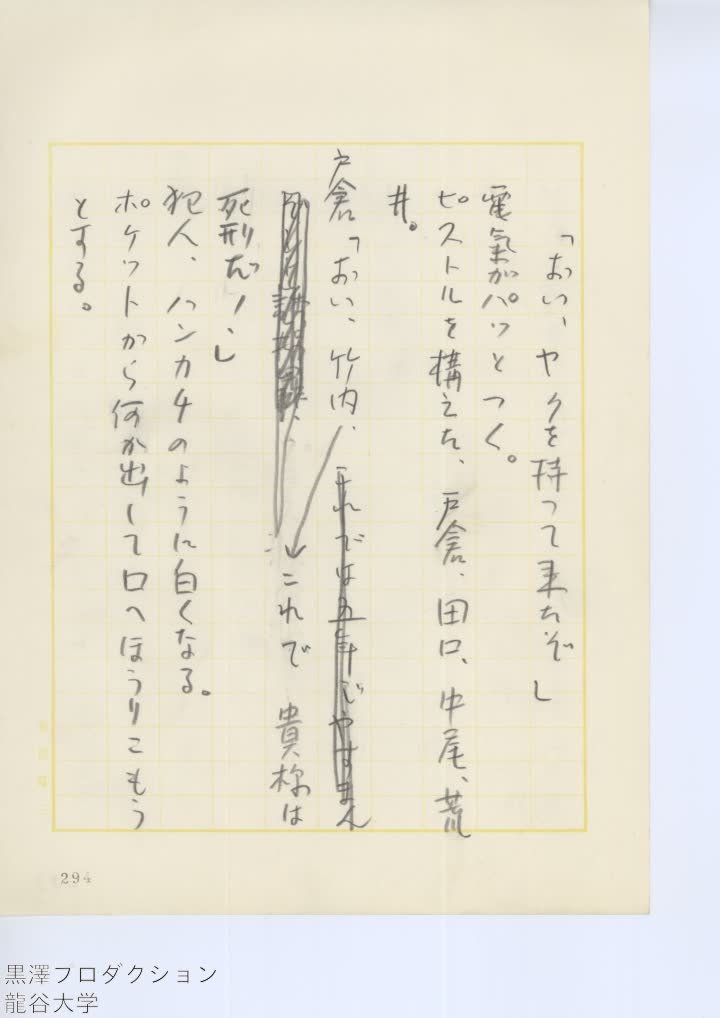 「おい、ヤクを持って来たぞ」
電氣がパッとつく。
ピストルを構えた、戸倉、田口、中尾、荒
井。
戸倉「おい、竹内、これでは五年じやすまん
これで貴様は
死刑だ！」
犯人、ハンカチのように白くなる。
ポケットから何か出して口へほうりこもう
とする。
294
黒澤プロダクション
龍谷大学